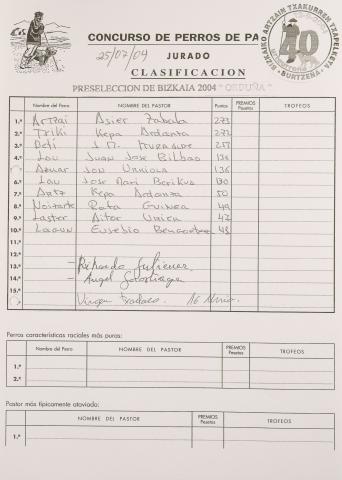 CONCURSO DE PERROS DE PA
25/07/04 JURADO
CLASIFICACION
PRESELECCION DE BIZKAIA 2004 "ORDUÑA"
BIZKAIKO ARTZAIN TXAKURREN TXAPELKETA
40
BURTZEÑA
Nombre del Perro NOMBRE DEL PASTOR Puntos PREMIOS Pesetas TROFEOS
1.º Artzai Asier Zabala 273
2.º Txiki Kepa Ardanza 272
3.º Beti J. M. 257
4.º Lau Juan Jose Bilbao 138
5.º Aznar Jon Urriola 136
6.º Lau Jose Mari Berikua 130
7.º Artz Kepa Ardanza 50
8.º Rata Guinea 49
9.º Laster Aitor Urien 47
10.º Lagun Eusebio 45
11.º
12.º
13.º - Rikardo Gutierrez
14.º - Angel
15.º Virgen
Perros características raciales más puras:
Nombre del Perro NOMBRE DEL PASTOR PREMIOS Pesetas TROFEOS
1.º
2.º
Pastor más típicamente ataviado:
NOMBRE DEL PASTOR PREMIOS Pesetas TROFEOS
1.º